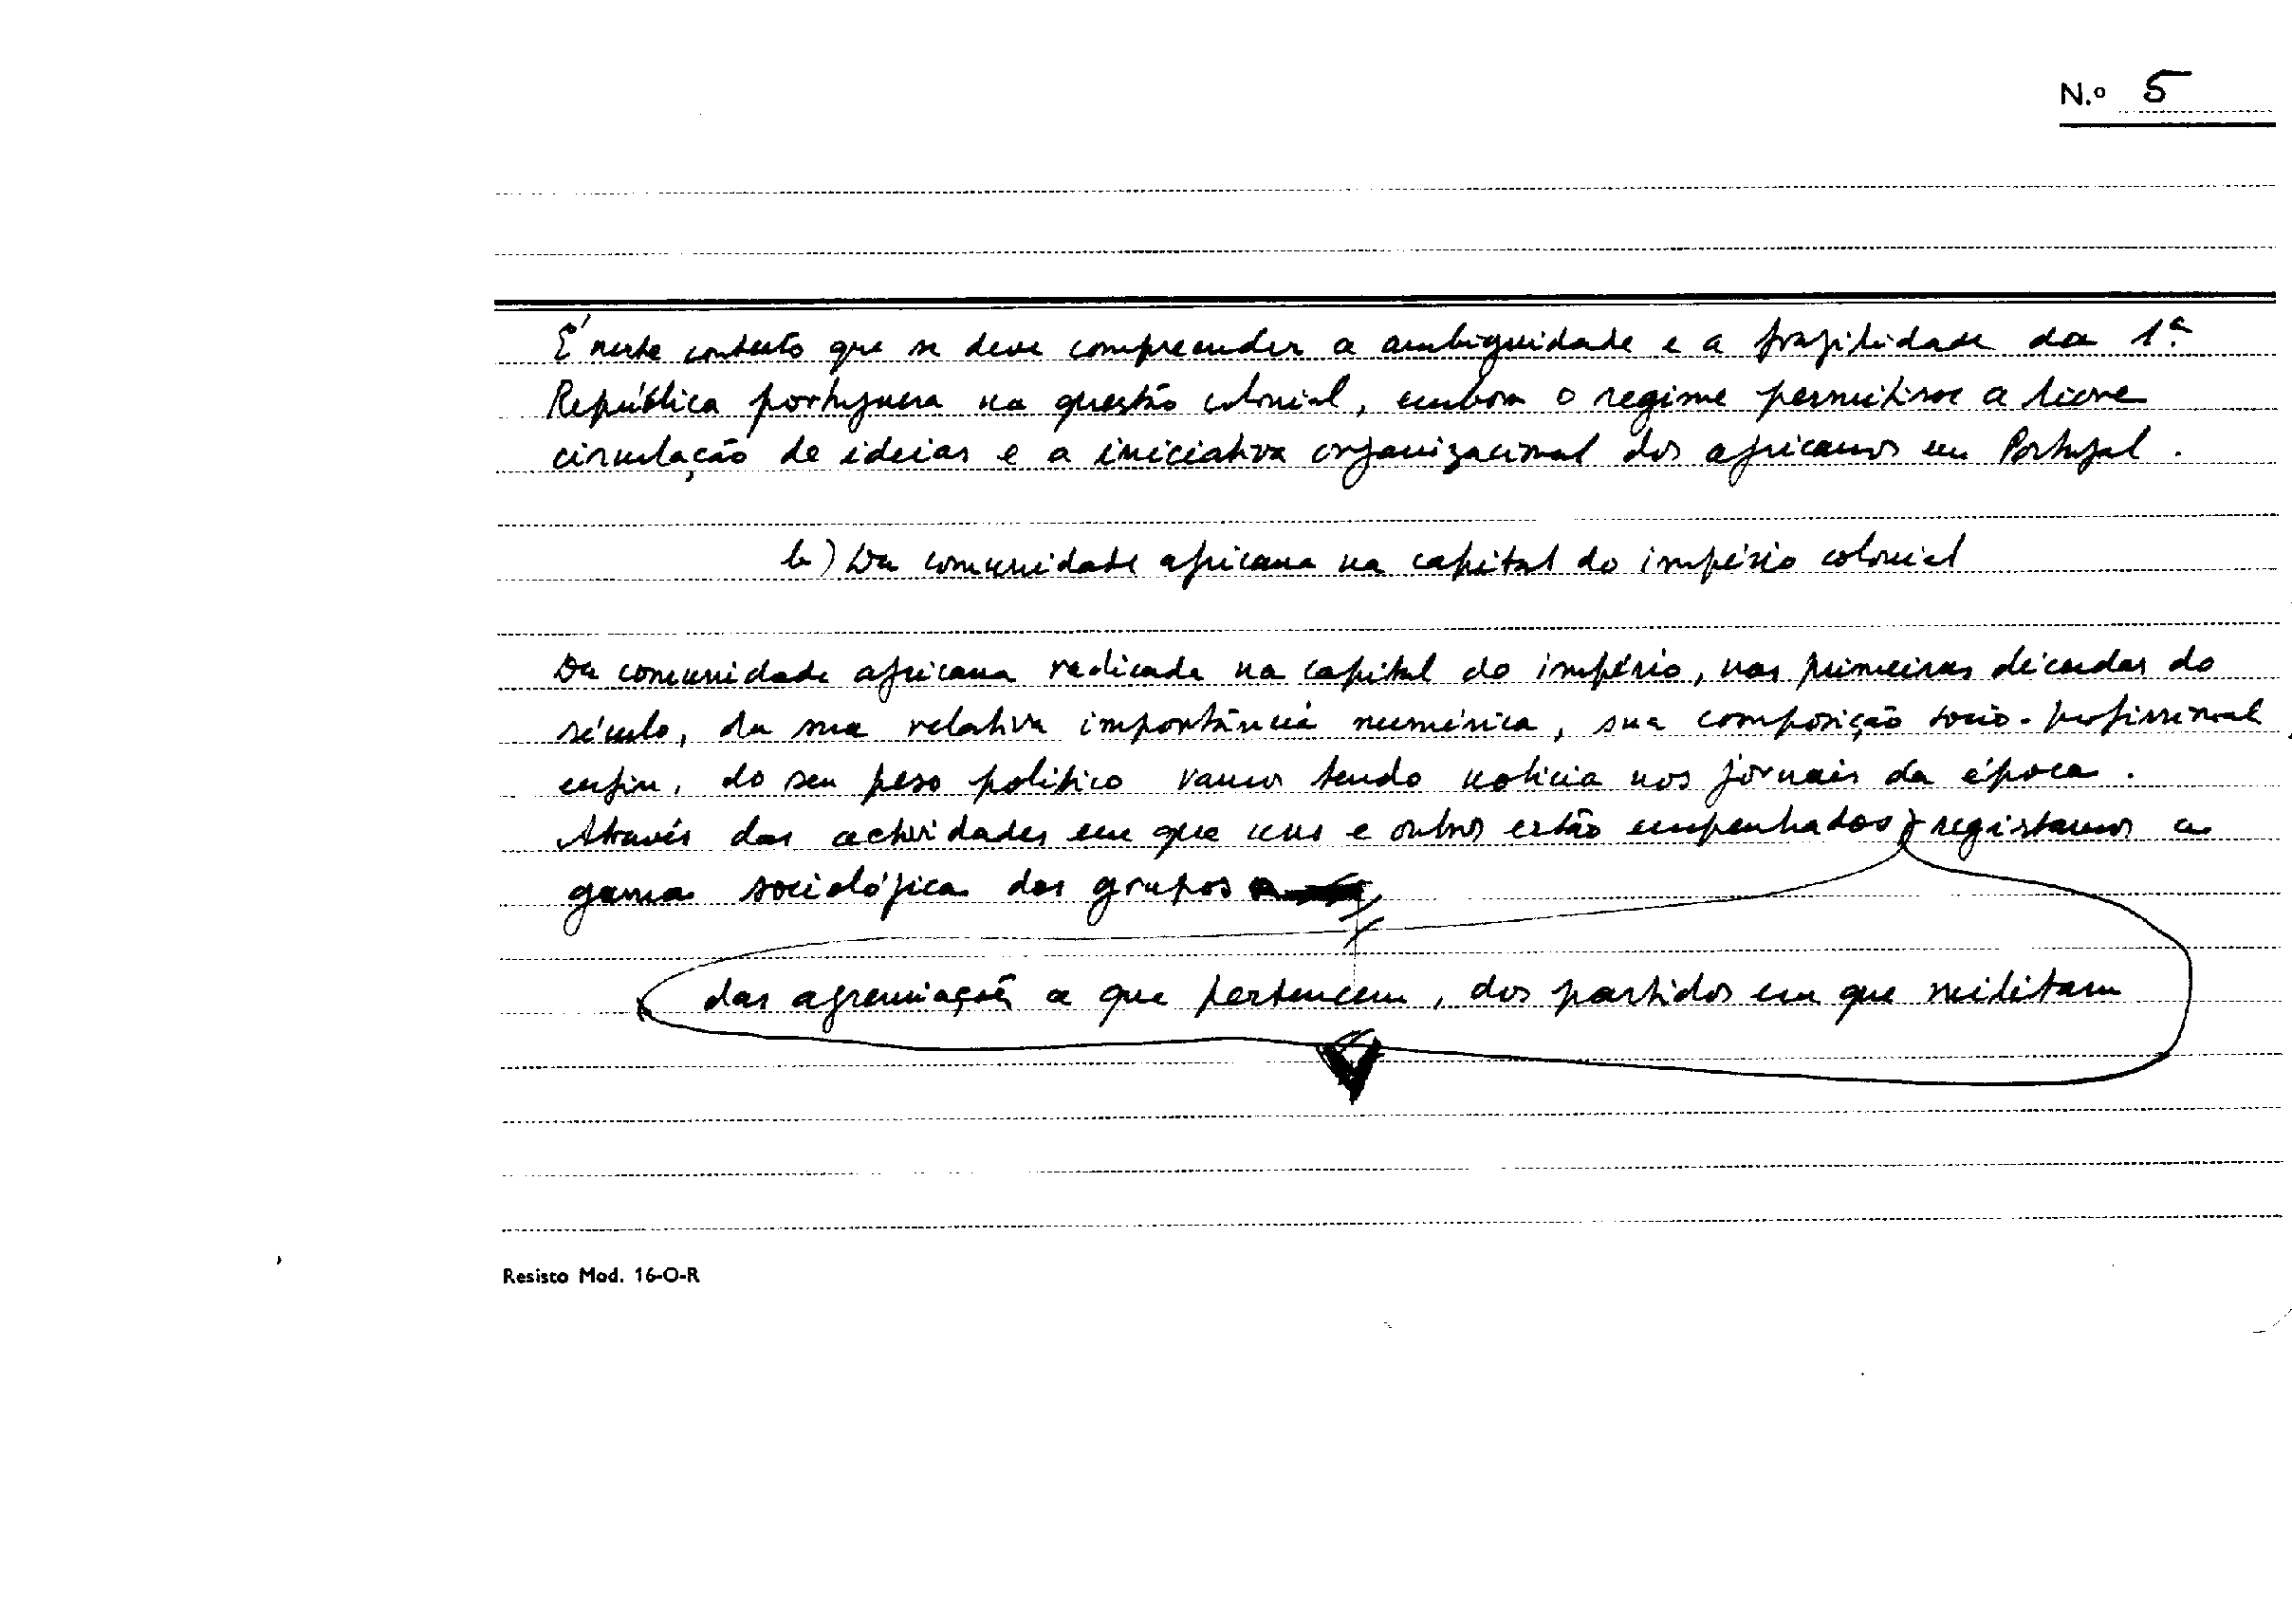 N.º 5
É neste contexto que se deve compreender a ambiguidade e a fragilidade da 1ª.
República portuguesa na questão colonial, embora o regime permitisse a livre
circulação de ideias e a iniciativa organizacional dos africanos em Portugal.
b) Da comunidade africana na capital do império colonial
Da comunidade africana radicada na capital do império, nas primeiras décadas do
século, da sua relativa importância numérica, sua composição socio-profissional,
enfim, do seu peso politico vamos tendo noticia nos jornais da época.
Através das actividades em que uns e outros estão empenhados, registamos a
gama sociológica dos grupos
das agremiações a que pertencem, dos partidos em que militam
Resisto Mod. 16-O-R